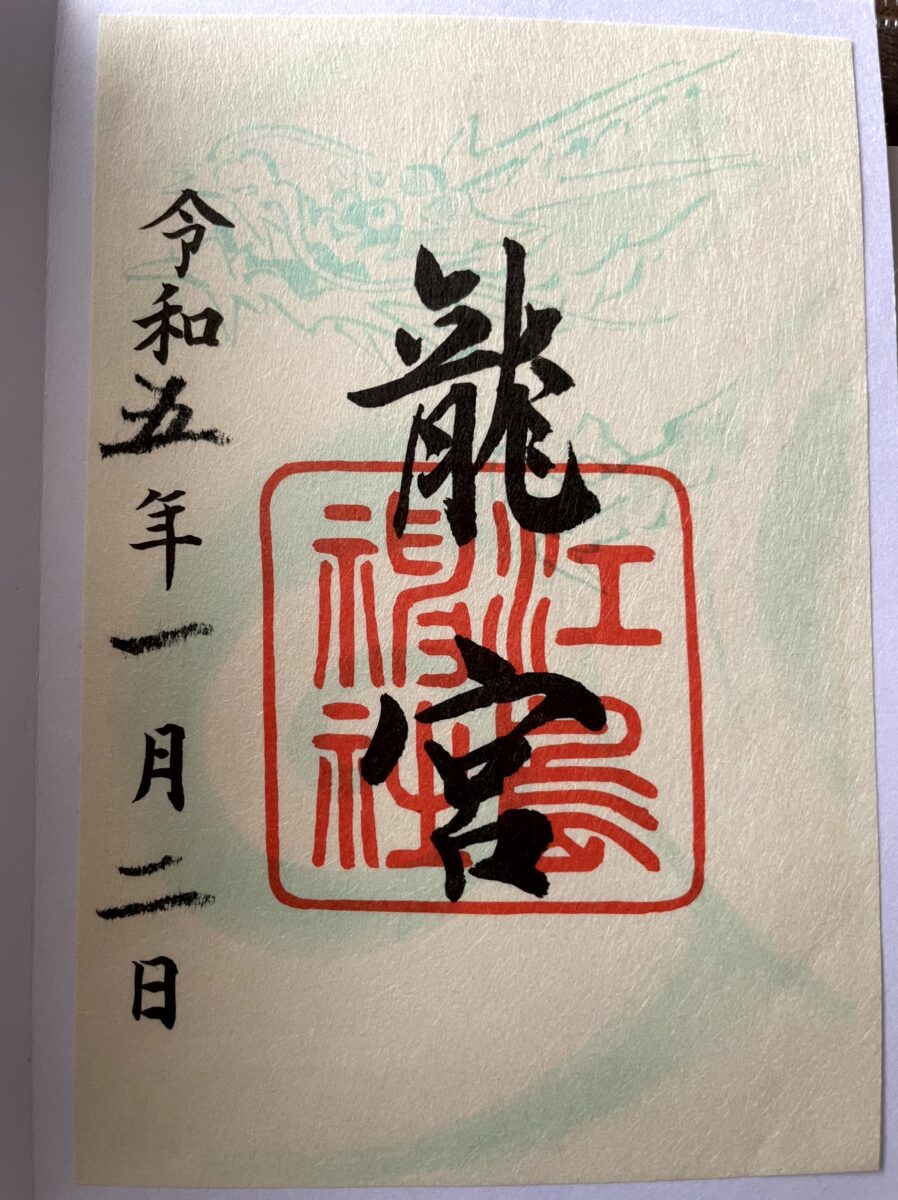 龍宮
江島
神社
令和五年一月二日